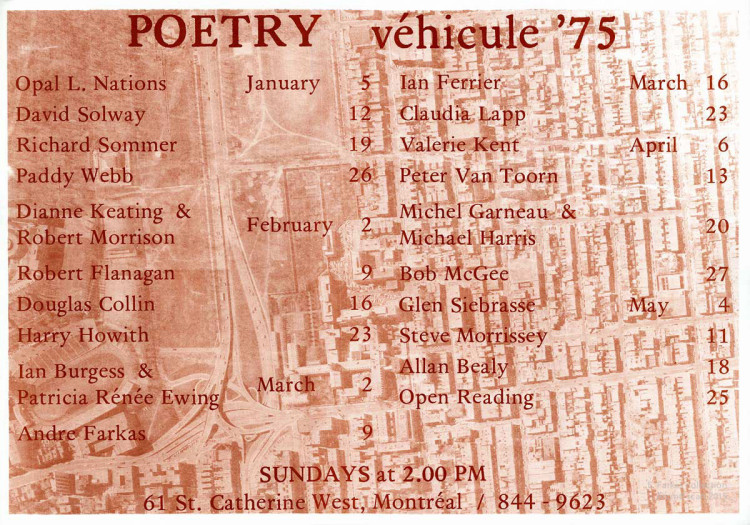 POETRY véhicule '75
Opal L. Nations January 5
David Solway 12
Richard Sommer 19
Paddy Webb 26
Dianne Keating &
Robert Morrison February 2
Robert Flanagan 9
Douglas Collin 16
Harry Howith 23
Ian Burgess &
Patricia Rénée Ewing March 2
Andre Farkas 9
Ian Ferrier March 16
Claudia Lapp 23
Valerie Kent April 6
Peter Van Toorn 13
Michel Garneau &
Michael Harris 20
Bob McGee 27
Glen Siebrasse May 4
Steve Morrissey 11
Allan Bealy 18
Open Reading 25
SUNDAYS at 2.00 PM
61 St. Catherine West, Montréal / 844-9623